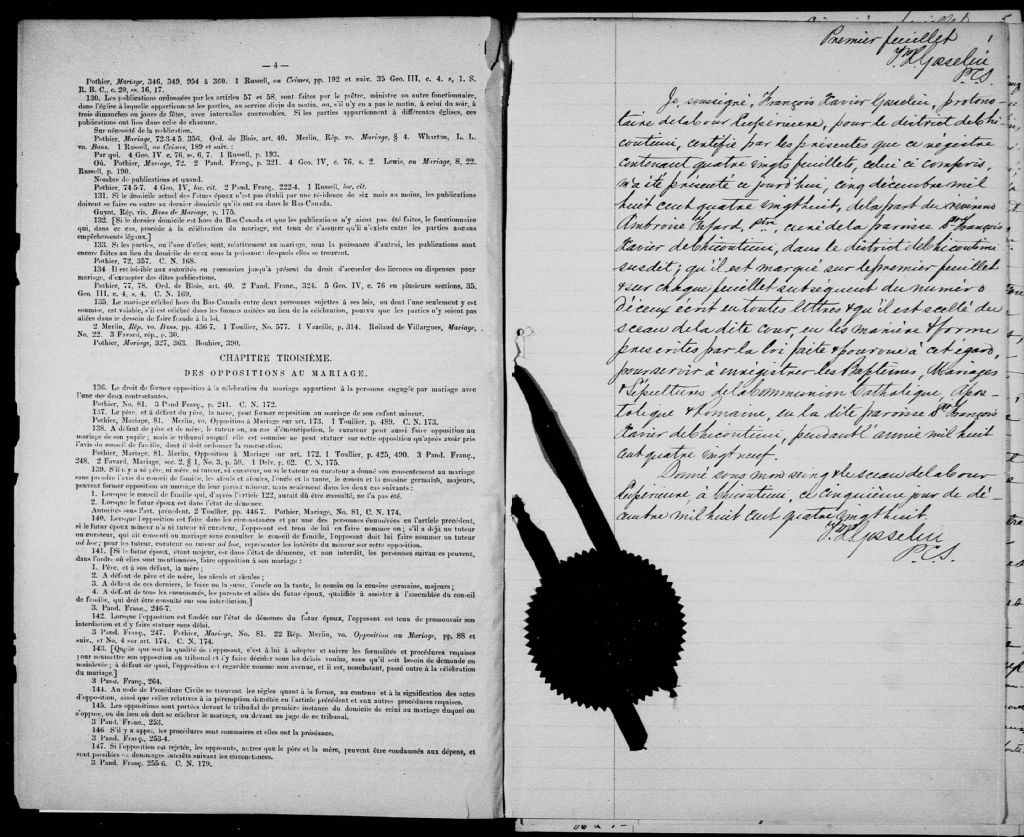 — 4 —
Pothier, Mariage, 346, 349, 954 à 360. 1 Russell, on Crimes, pp. 192 et suiv. 35 Geo. III, c. 4. s, 1. S.
R. B. C., c. 20, ss. 16, 17.
130. Les publications ordonnées par les articles 57 et 58, sont faites par le prêtre, ministre ou autre fonctionnaire,
dans l'église à laquelle appartiennent les parties, au service divin du matin, ou, s'il n'y en a pas le matin, à celui du soir, à
trois dimanches ou jours de fêtes, avec intervalles convenables. Si les parties appartiennent à différentes églises, ces
publications ont lieu dans celle de chacune.
Sur nécessité de la publication.
Pothier, Mariage, 72-3-4-5. 356. Ord. de Blois, art. 40. Merlin, Rép. vo. Mariage, § 4. Wharton, L. L.
vo. Bans. 1 Russell, on Crimes, 189 et suiv. :
Par qui. 4 Geo. IV, c. 76, ss. 6, 7. 1 Russell, p. 193.
Où. Pothier, Mariage, 72. 2 Pand. Franç., p 321. 4 Geo. IV, c. 76, s. 2. Lewis, on Mariage, 8, 22.
Russell, p. 190.
Nombre de publications et quand.
Pothier, 74-5-7. 4 Geo. IV, loc. cit. 2 Pand. Franç. 222-4. 1 Russell, loc. cit.
131. Si le domicile actuel des futurs époux n'est pas établi par une résidence de six mois au moins, les publications
doivent se faire en outre au dernier domicile qu'ils ont eu dans le Bas-Canada.
Guyot, Rép. vis. Bans de Mariage, p. 175.
132. [Si le dernier domicile est hors du Bas-Canada et que les publications n'y aient pas été faites, le fonctionnaire
qui, dans ce cas, procède à la célébration du mariage, est tenu de s'assurer qu'il n'existe entre les parties aucuns
empêchements légaux.]
133. Si les parties, ou l'une d'elles, sont, relativement au mariage, sous la puissance d'autrui, les publications sont
encore faites au lieu du domicile de ceux sous la puissance desquels elles se trouvent.
Pothier, 72, 357. C. N. 168.
134 Il est loisible aux autorités en possession jusqu'à présent du droit d'accorder des licences ou dispenses pour
mariage, d'exempter des dites publications.
Pothier, 77, 78. Ord. de Blois, art. 40. 2 Pand. Franç., 324. 5 Geo. IV, c. 76 en plusieurs sections, 35.
Geo. III. c. 4, s. 4. C. N. 169.
135. Le mariage célébré hors du Bas-Canada entre deux personnes sujettes à ses lois, ou dont l'une seulement y est
soumise, est valable, s'il est célébré dans les formes usitées au lieu de la célébration, pourvu que les parties n'y soient pas
allées dans le dessein de faire fraude à la loi.
2 Merlin, Rép. vo Bans, pp. 436-7. 1 Toullier, No. 577. 1 Vazeille, p. 314. Rolland de Villargues, Mariage,
No. 22. 3 Favard, rép., p. 30.
Pothier, Mariage, 327, 363. Bouhier, 390.
CHAPITRE TROISIÈME.
DES OPPOSITIONS AU MARIAGE.
136. Le droit de former opposition à la célébration du mariage appartient à la personne engagée par mariage avec
l'une des deux contractantes.
Pothier, No. 81. 3 Pand Franç., p. 241. C. N. 172.
137. Le père, et à défaut du père, la mère, peut former opposition au mariage de son enfant mineur.
Pothier, Mariage, 81. Merlin, vo. Opposition à Mariage sur art. 173. 1 Toullier, p. 489. C. N. 173.
138. A défaut de père et de mère, le tuteur ou, au cas d'émancipation, le curateur peut aussi faire opposition au
mariage de son pupile ; mais le tribunal auquel elle est soumise ne peut statuer sur cette opposition qu'après avoir pris
l'avis du conseil de famille, dont il doit ordonner la convocation.
Pothier, Mariage, 81. Merlin, Opposition à Mariage sur art. 172. 1 Toullier, p. 425, 490. 3 Pand. Franç.,
248. 2 Favard, Mariage, sec. 2, § 1, No. 3, p. 59. 1 Delv. p. 62. C. N. 175.
139. S'il n'y a ni père, ni mère, ni tuteur, ni curateur, ou si le tuteur ou curateur a donné son consentement au mariage
sans prendre l'avis du conseil de famille, les aïeuls et aïeules, l'oncle et la tante, le cousin et la cousine germains, majeurs,
peuvent former opposition au mariage de leur parent mineur, mais seulement dans les deux cas suivants :
1. Lorsque le conseil de famille qui, d'après l'article 122, aurait dû être consulté, ne l'a pas été.
2. Lorsque le futur époux est dans l'état de démence.
Autorités sous l'art. précédent. 2 Toullier, pp. 446-7. Pothier, Mariage, No. 81, C. N. 174.
140. Lorsque l'opposition est faite dans les circonstances et par une des personnes énumérées en l'article précédent,
si le futur époux mineur n'a ni tuteur ni curateur, l'opposant est tenu de lui en faire nommer un ; s'il a déjà un tuteur
ou curateur, qui ait consenti au mariage sans consulter le conseil de famille, l'opposant doit lui faire nommer un tuteur
ad hoc ; pour les tuteur, curateur ou tuteur ad hoc, représenter les intérêts du mineur sur cette opposition.
141. [Si le futur époux, étant majeur, est dans l'état de démence, et non interdit, les personnes suivantes peuvent,
dans l'ordre où elles sont mentionnées, faire opposition à son mariage :
1. Père, et à son défaut, la mère ;
2. A défaut de père et de mère, les aïeuls et aïeules ;
3. A défaut de ces derniers, le frère ou la sœur, l'oncle ou la tante, le cousin ou la cousine germains, majeurs ;
4. A défaut de tous les susnommés, les parents et alliés du futur époux, qualifiés à assister à l'assemblée du conseil
de famille, qui doit être consulté sur son interdiction.]
3. Pand. Franc., 246-7.
142. Lorsque l'opposition est fondée sur l'état de démence du futur époux, l'opposant est tenu de promouvoir son
interdiction et d'y faire statuer sans délai.
3 Pand. Franç., 247. Pothier, Mariage, No. 81. 22 Rép. Merlin, vo. Opposition au Mariage, pp. 88 et
suiv., et No. 4 sur art. 174. C. N. 174.
143. [Quelle que soit la qualité de l'opposant, c'est à lui à adopter et suivre les formalités et procédures requises
pour soumettre son opposition au tribunal et l'y faire décider sous les délais voulus, sans qu'il soit besoin de demande en
mainlevée ; à défaut de quoi, l'opposition est regardée comme non avenue, et il est, nonobstant, passé outre à la célébration
du mariage.]
3 Pand. Franç., 264.
144. Au code de Procédure Civile se trouvent les règles quant à la forme, au contenu et à la signification des actes
d'opposition, ainsi que celles relatives à la péremption décrétée en l'article précédent et aux autres procédures requises.
145. Les oppositions sont portées devant le tribunal de première instance du domicile de celui au mariage duquel on
s'oppose, ou du lieu où doit se célébrer le mariage, ou devant un juge de ce tribunal.
3 Pand. Franc., 253.
146 S'il y a appel, les procédures sont sommaires et elles ont la préséance.
3 Pand. Franç., 253-4.
147. Si l'opposition est rejetée, les opposants, autres que le père et la mère, peuvent être condamnés aux dépens, et
sont passibles de dommages-intérêts suivant les circonstances.
3 Pand. Franc. 255-6. C. N. 179.
Premier feuillet
F. X. Gosselin
P.C.S.
Je, soussigné, François Xavier Gosselin, protono-
taire de la Cour Supérieure, pour le district de Chi-
coutimi, certifie par les présentes que ce régistre
contenant quatre vingts feuillets, celui ci compris,
m'a été présenté ce jourd'hui, cinq décembre mil
huit cent quatre vingt huit, de la part du révérend
Ambroise Fafard, Ptre, curé de la paroisse St François
Xavier de Chicoutimi, dans le district de Chicoutimi
susdit ; qu'il est marqué sur le premier feuillet
& sur chaque feuillet subséquent du numéro
d'iceux écrit en toutes lettres & qu'il est scellé du
sceau de la dite cour, en les manière & forme
prescrites par la loi faite & pourvue à cet égard,
pour servir à enrégistrer les Baptêmes, Mariages
& Sépultures de la Communion Catholique, Apos-
tolique & Romaine, en la dite paroisse St François
Xavier de Chicoutimi, pendant l'année mil huit
cent quatre vingt neuf.
Donné sous mon seing & le sceau de la Cour
Supérieure, à Chicoutimi, ce cinquième jour de dé-
cembre mil huit cent quatre vingt huit
F. X. Gosselin
P.C.S.